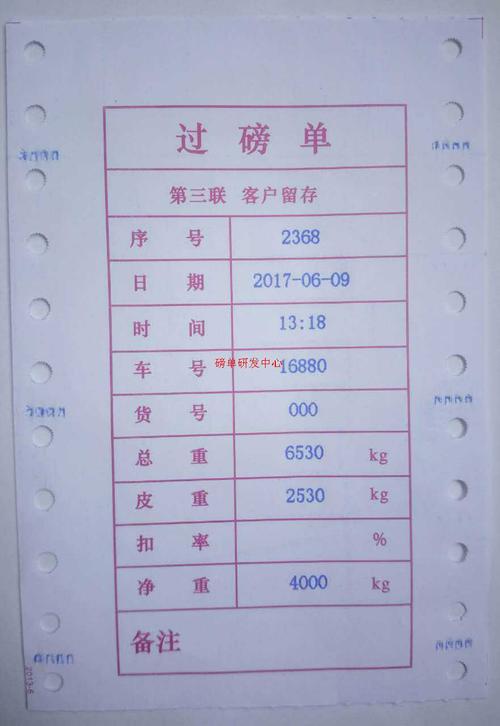 过磅单
第三联 客户留存
序号 2368
日期 2017-06-09
时间 13:18
磅单研发中心
车号 16880
货号 000
总重 6530 kg
皮重 2530 kg
扣率 %
净重 4000 kg
备注
2013-6